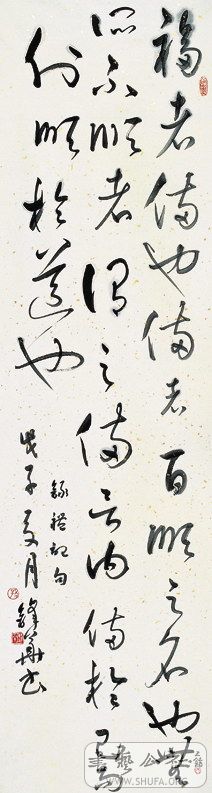 福者備也備者百順之名也無
所不順者謂之備言内備於
外順於道也
錄禮記句
戊子夏月鋒書
書藝公社
WWW.SHUFA.ORG